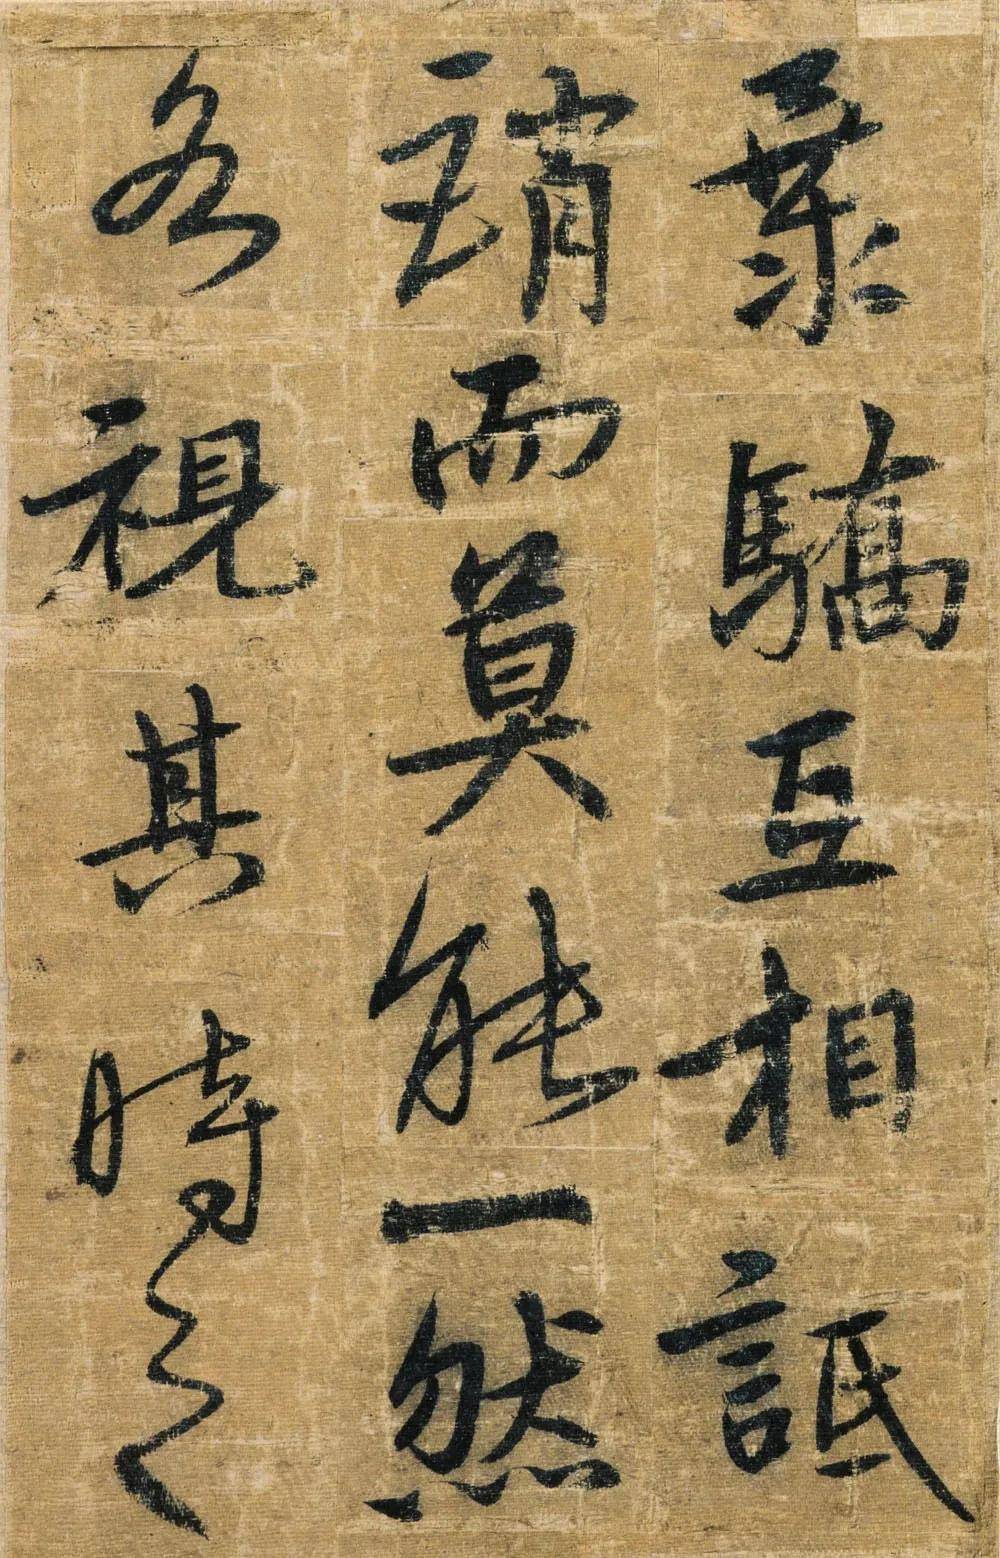 業驕互相詆
誚而莫能一然
各視其時之